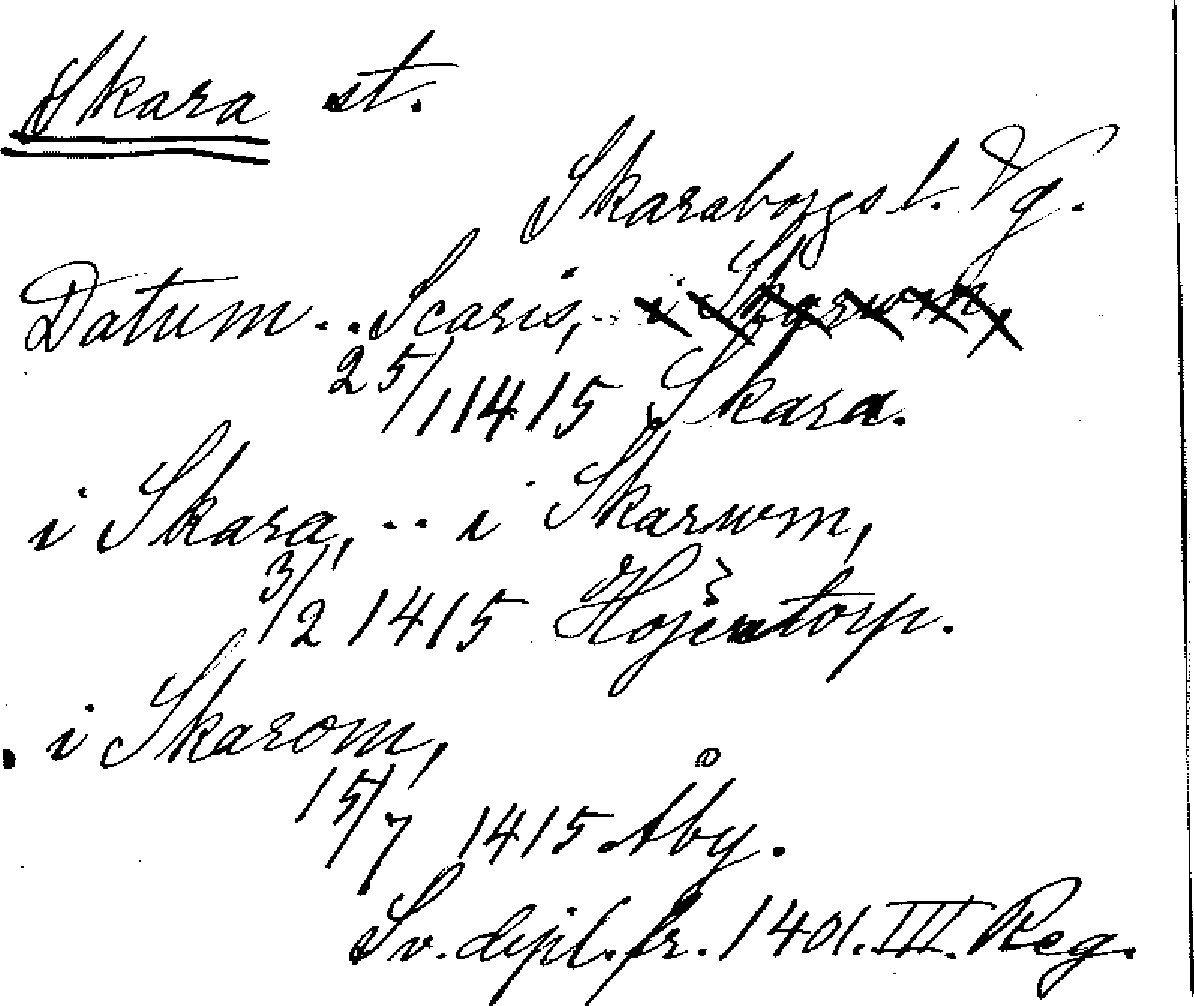 Skara st.
Skaraborgs l. Vg.
Datum .. Scaris, .. i Skarwm,
25/1 1415 Skara.
i Skara, .. i Skarwm,
3/2 1415 Höjentorp.
. i Skarom,
15/7 1415 Åby.
Sv. dipl. fr. 1401. III. Reg.